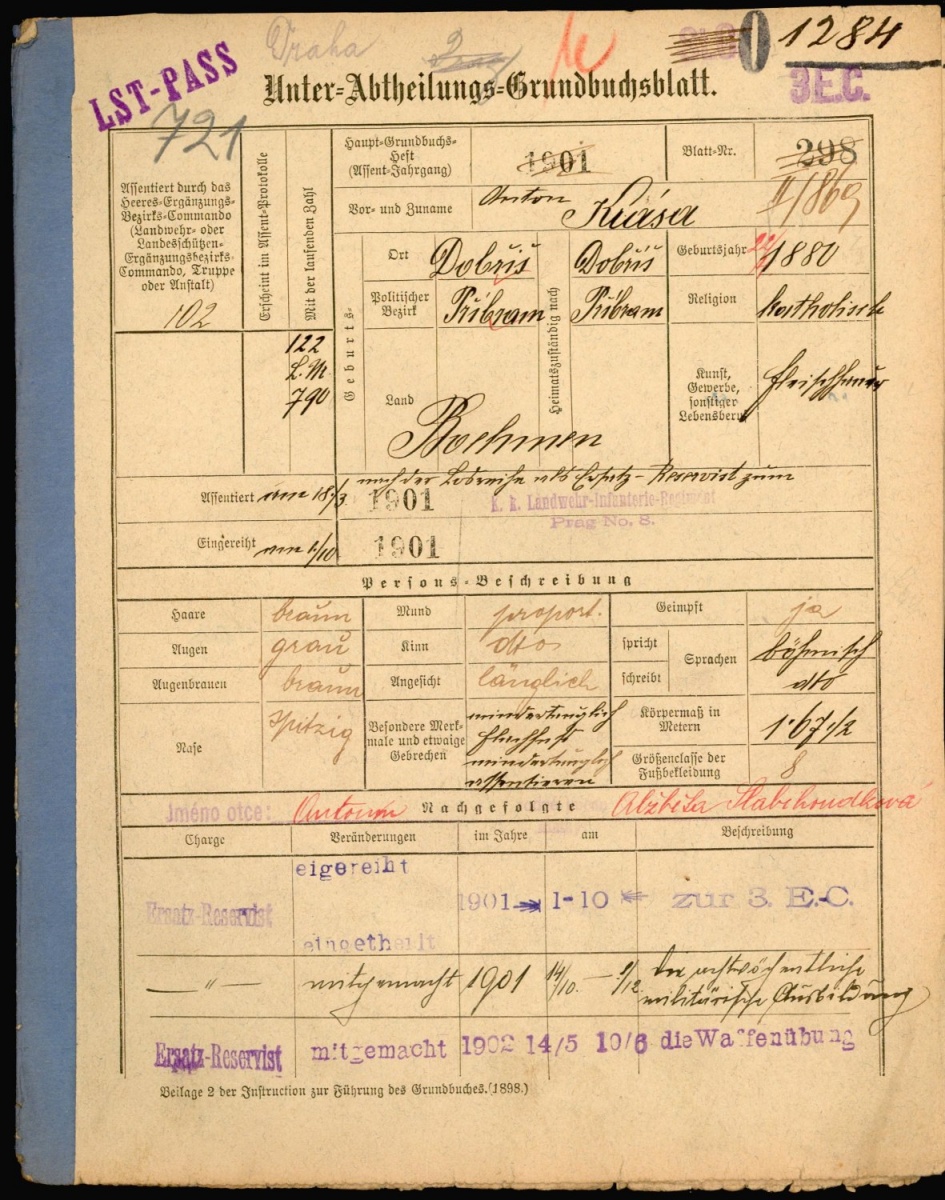 LST-PASS
Praha
1284
Unter-Abtheilungs-Grundbuchsblatt.
3E.C.
721
Assentiert durch das Heeres-Ergänzungs-Bezirks-Commando (Landwehr- oder Landesschützen-Ergänzungsbezirks-Commando, Truppe oder Anstalt)
102
Erscheint im Assent-Protokolle
Mit der laufenden Zahl
122
L.M
790
Haupt-Grundbuchs-Heft (Assent-Jahrgang)
1901
Blatt-Nr.
298
II/869
Vor- und Zuname
Anton
Geburts-
Ort
Dobřiš
Heimatszuständig nach
Dobřiš
Geburtsjahr
1880
Politischer Bezirk
Příbram
Příbram
Religion
katholisch
Land
Boehmen
Kunst, Gewerbe, sonstiger Lebensberuf
Fleischhauer
Assentiert am 18/3 1901
nach der Losreihe als Ersatz-Reservist zum
k. k. Landwehr-Infanterie-Regiment
Prag No. 8.
Eingereiht am 1/10 1901
Persons-Beschreibung
Haare braun
Mund proport.
Geimpft ja
Augen grau
Kinn dto
spricht
schreibt
Sprachen
böhmisch
dto
Augenbrauen braun
Angesicht länglich
Nase spitzig
Besondere Merkmale und etwaige Gebrechen
mindertauglich
mindertauglich
assentieren
Körpermaß in Metern 1·67½
Größenclasse der Fußbekleidung 8
Jméno otce: Antonín
Nachgefolgte
Alžběta Slabihoudková
Charge
Veränderungen
im Jahre
am
Beschreibung
Ersatz-Reservist
eigereiht
eingetheilt
1901 1-10
zur 3. E.-C.
— " — mitgemacht 1901 14/10. — 8/12 die achtwöchentliche
militärische Ausbildung
Ersatz-Reservist mitgemacht 1902 14/5 10/6 die Waffenübung
Beilage 2 der Instruction zur Führung des Grundbuches. (1898.)